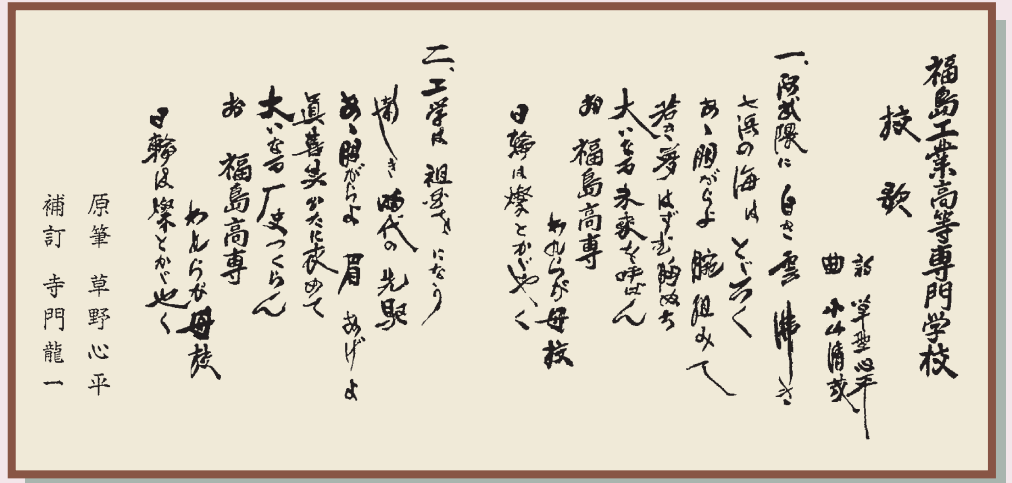 福島工業高等専門学校
校歌
詞 草野心平
曲 小山清茂
一、阿武隈に 白き雲 沸き
七浜の海は とどろく
あゝ朋がらよ 腕組みて
若き夢はずむ胸ぬち
大いなる未来を呼ばん
おゝ 福島高専
われらが母校
日輪は燦とかがやく
二、工学は 祖国を になう
新しき 時代の先駆
あゝ朋がらよ 眉 あげよ
眞善美ひたに求めて
大いなる厂史つくらん
おゝ 福島高専
われらが母校
日輪は燦とかがやく
原筆 草野心平
補訂 寺門龍一